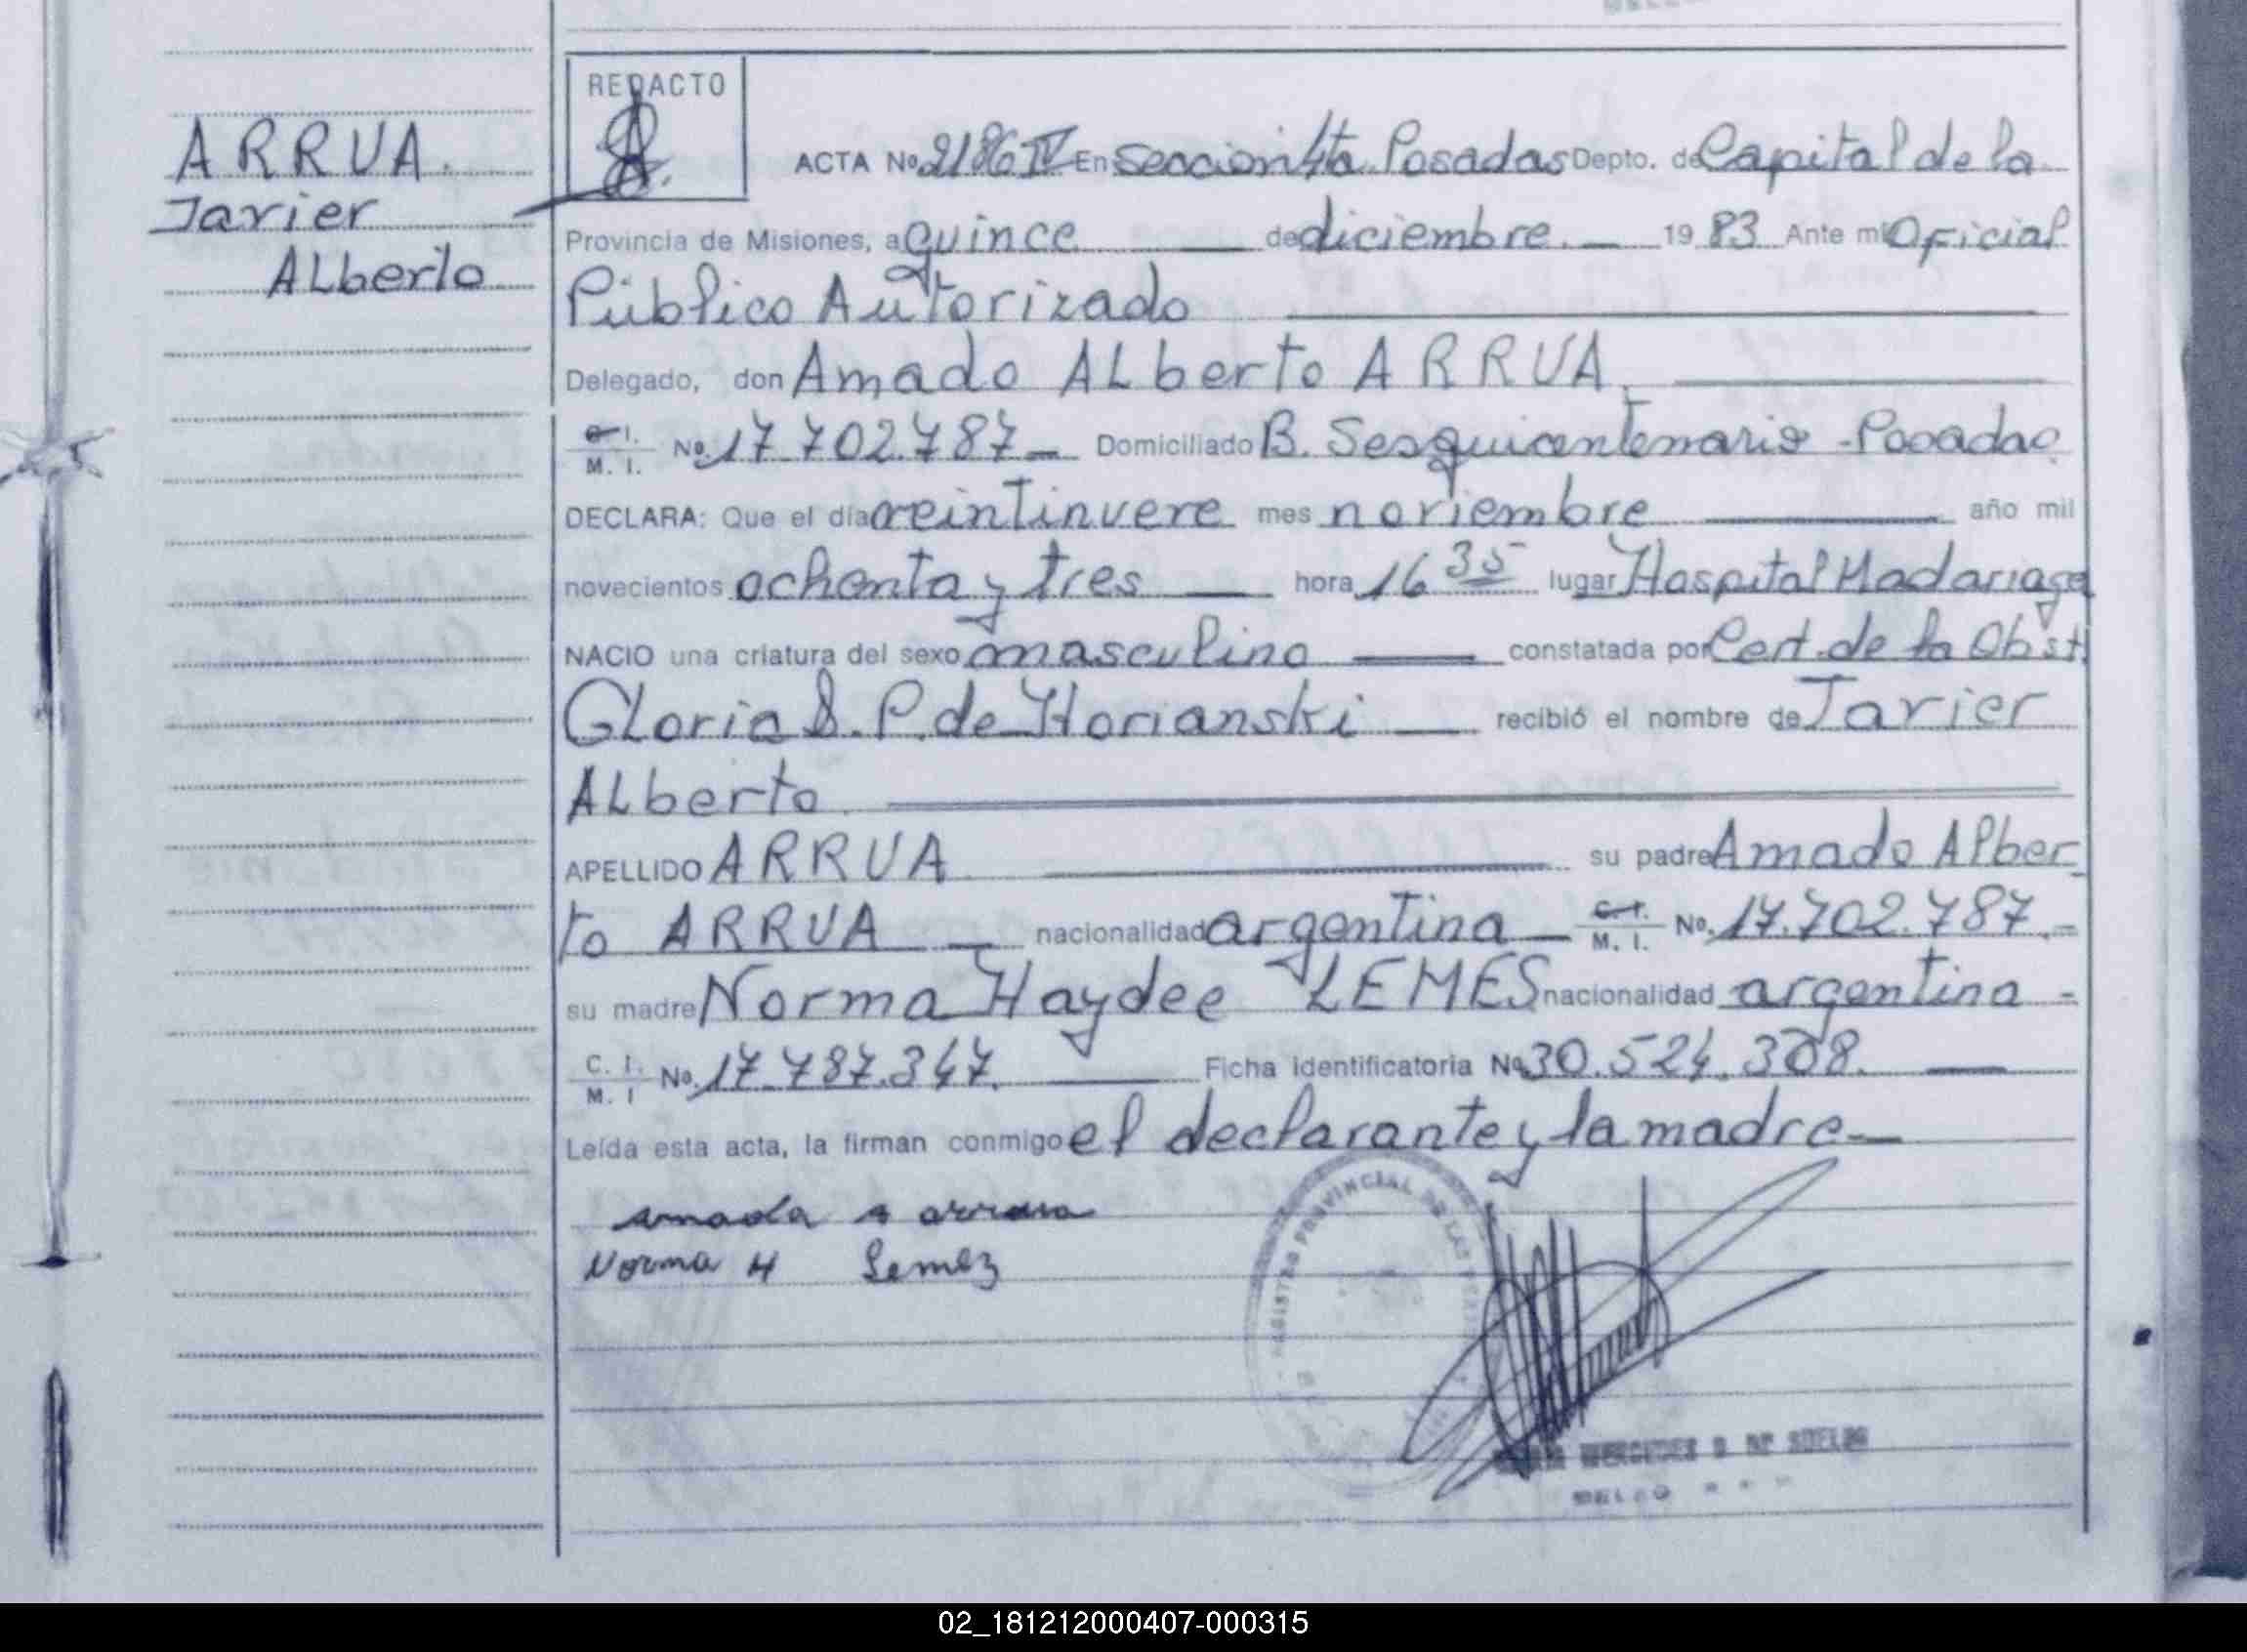 ARRUA.
Javier
ALberto
REDACTO
ACTA Nº 2186 IV En Seccion 4ta Posadas Depto. de Capital de la
Provincia de Misiones, a quince de diciembre. 19 83 Ante mi Oficial
Público Autorizado
Delegado, don Amado ALberto ARRUA,
C. I.
M. I. Nº 17.702.787 Domiciliado B. Sesquicentenario - Posadas
DECLARA: Que el día veintinueve mes noviembre año mil
novecientos ochenta y tres hora 16 35 lugar Hospital Madariaga
NACIO una criatura del sexo masculino constatada por Cert. de la Obst.
GLoria S. P. de Horianski recibió el nombre de Javier
ALberto.
APELLIDO ARRUA su padre Amado Alber
to ARRUA nacionalidad argentina C. I.
M. I. Nº 17.702.787.-
su madre Norma Haydee LEMES nacionalidad argentina -
C. I.
M. I Nº 17.787.347. Ficha identificatoria Nº 30.524.308.
Leída esta acta, la firman conmigo el declarante y la madre
amado a arrua
Norma H Lemez
REGISTRO PROVINCIAL DE LAS PERSONAS
MERCEDES
02_181212000407-000315